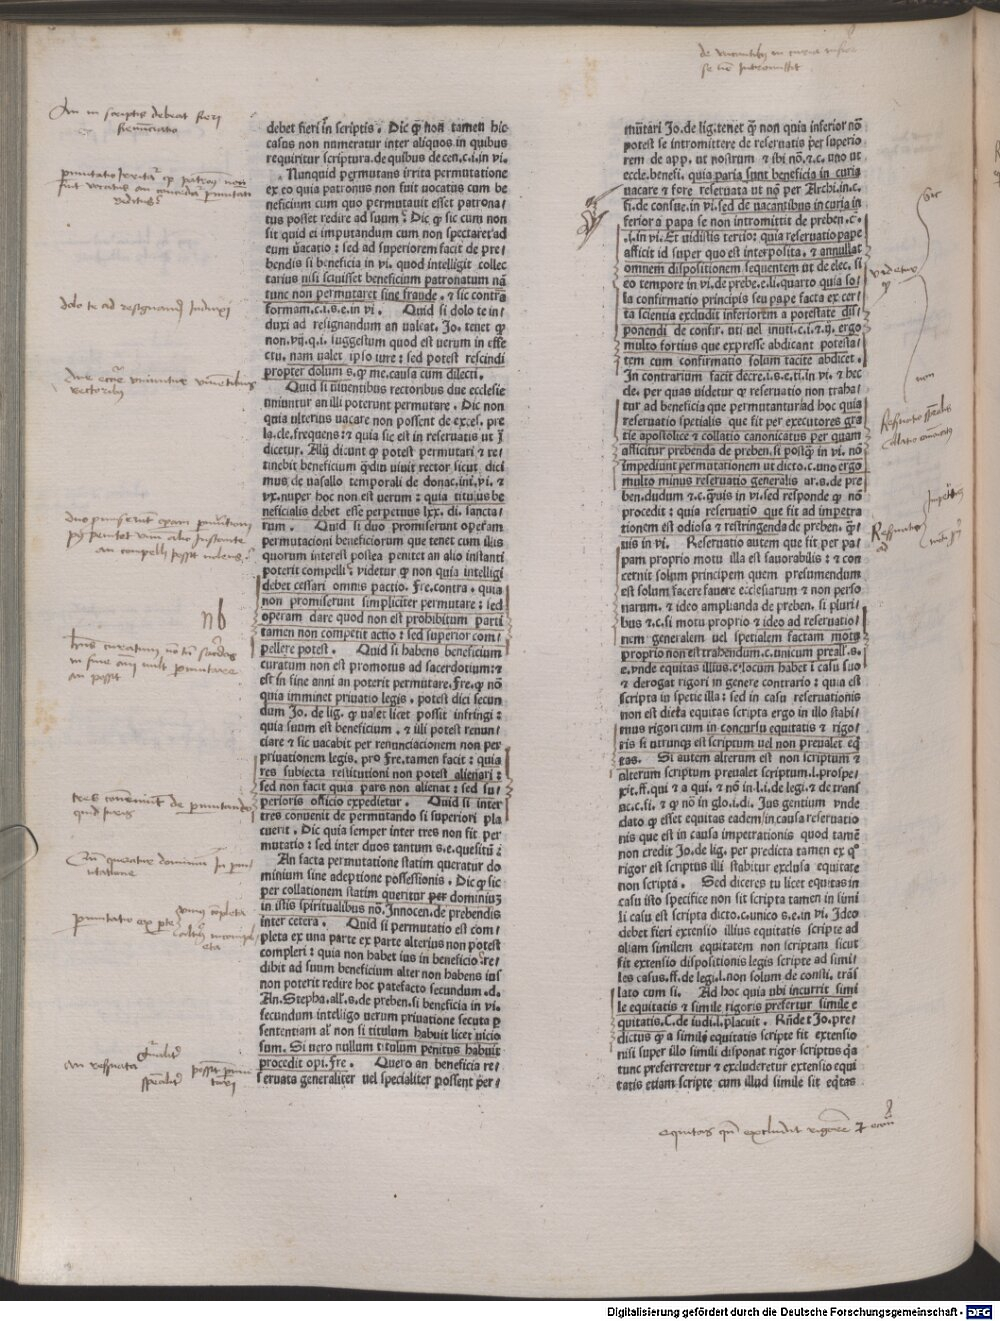 debet fieri in scriptis. Dic qͥ non tamen hic
casus non numeratur inter aliquos in quibus
requiritur scriptura.de quibus de cen.c.i.in vi.
Nunquid permutans irrita permutatione
ex eo quia patronus non fuit uocatus cum be
neficium cum quo permutauit esset patrona/
tus posset redire ad suum? Dic qͥ sic cum non
sit quid ei imputandum cum non spectaret ad
eum uacatio: sed ad superiorem facit de pre/
bendis si beneficia in vi. quod intelligit collec
tarius nisi sciuisset beneficium patronatum nā
tunc non permutaret sine fraude. ⁊ sic contra
formam.c.i.s.e.in vi. Quid si dolo te in/
duxi ad resignandum an ualeat. Jo. tenet qͥ
non.vij.q.i. suggestum quod est uerum in effe
ctu. nam ualet ipso iure: sed potest rescindi
propter dolum s.qͥ me.causa cum dilecti.
Quid si uiuentibus rectoribus due ecclesie
uniuntur an illi poterunt permutare. Dic non
quia ulterius uacare non possent de exces. pre
la.cle.frequens:⁊ quia sic est in reseruatis ut ī
dicetur. Alij dicunt qͥ potest permutari ⁊ re/
tinebit beneficium qͥdiu uiuit rector sicut dici
mus de uasallo temporali de donac.int.vi. ⁊
vx.nuper hoc non est uerum: quia titulus be
neficialis debet esse perpetuus lxx. di. sancta/
rum. Quid si duo promiserunt operam
permutacioni beneficiorum que tenet cum illis
quorum interest postea penitet an alio instanti
poterit compelli: videtur qͥ non quia intelligi
debet cessari omnis pactio. Fre.contra. quia
non promiserunt simpliciter permutare: sed
operam dare quod non est prohibitum parti
tamen non competit actio: sed superior com/
pellere potest. Quid si habens beneficium
curatum non est promotus ad sacerdotium:⁊
est in fine anni an poterit permutare. Fre.qͥ nō
quia imminet priuatio legis. potest dici secun
dum Jo. de lig. qͥ ualet licet possit infringi:
quia suum est beneficium. ⁊ illi potest renun/
ciare ⁊ sic uacabit per renunciacionem non per
priuationem legis. pro Fre.tamen facit: quia
res subiecta restitutioni non potest alienari:
sed non facit quia pars non alienat: sed su/
perioris officio expedietur. Quid si inter
tres conuenit de permutando si superiori pla
cuerit. Dic quia semper inter tres non fit per
mutatio: sed inter duos tantum s.e.quesitū:
An facta permutatione statim queratur do
minium sine adeptione possessionis. Dic qͥ sic
per collationem statim queritur per dominiuz
in istis spiritualibus nō.Innocen.de prebendis
inter cetera. Quid si permutatio est com/
pleta ex una parte ex parte alterius non potest
compleri: quia non habet ius in beneficio: re/
dibit ad suum beneficium alter non habens ius
non poterit redire hoc patefacto secundum.d.
An.Stepha.all.s.de preben.si beneficia in vi.
secundum intelligo uerum priuatione secuta p
sententiam al' non si titulum habuit licet uicio
sum. Si uero nullum titulum penitus habuit
procedit opi.Fre. Quero an beneficia re/
seruata generaliter uel specialiter possent per/
mūtari Jo.de lig.tenet qͥ non quia inferior nō
potest se intromittere de reseruatis per superio
rem de app. ut nostrum ⁊ ibi nō.⁊.c. uno ut
eccle.benefi. quia paria sunt beneficia in curia
uacare ⁊ fore reseruata ut nō per Archi.in.c.
fi.de consue.in vi.sed de uacantibus in curia in
ferior a papa se non intromittit de preben.c̄.
.i.in vi. Et uidistis tercio: quia reseruatio pape
afficit id super quo est interposita. ⁊ annullat
omnem dispositionem sequentem ut de elec. si
eo tempore in vi.de prebe.e.li.quarto quia so/
la confirmatio principis seu pape facta ex cer/
ta scientia excludit inferiorem a potestate dis/
ponendi de confir. uti uel inuti.c.i.⁊.ij. ergo
multo fortius que expresse abdicant potesta/
tem cum confirmatio solum tacite abdicet.
In contrarium facit decre.i.s.e.ti.in vi. ⁊ hec
de. per quas uidetur qͥ reseruatio non traha/
tur ad beneficia que permutantur ad hoc quia
reseruatio spetialis que fit per executores gra
tie apostolice ⁊ collatio canonicatus per quam
afficitur prebenda de preben.si postqͥ in vi. nō
impediunt permutationem ut dicto.c.uno ergo
multo minus reseruatio generalis ar.s.de pre
ben.dudum ⁊.c.qͥuis in vi.sed responde qͥ nō
procedit: quia reseruatio que fit ad impetra
tionem est odiosa ⁊ restringenda de preben. qͥ/
uis in vi. Reseruatio autem que fit per pa/
pam proprio motu illa est fauorabilis: ⁊ con
cernit solum principem quem presumendum
est solum facere fauore ecclesiarum ⁊ non perso
narum. ⁊ ideo amplianda de preben. si pluri/
bus ⁊.c.si motu proprio ⁊ ideo ad reseruatio/
nem generalem uel spetialem factam motu
proprio non est trahendum.c.unicum preall'.s.
e.vnde equitas illius.c.locum habet ī casu suo
⁊ derogat rigori in genere contrario: quia est
scripta in spetie illa: sed in casu reseruationis
non est dicta equitas scripta ergo in illo stabi/
mus rigori cum in concursu equitatis ⁊ rigo/
ris si utrunqͥ est scriptum uel non preualet eq̄
tas. Si autem alterum est non scriptum ⁊
alterum scriptum preualet scriptum.l.prospe/
xit.ff.qui ⁊ a qui. ⁊ nō in.l.i.de legi.⁊ de trans
ac.c.fi. ⁊ qͥ nō in glo.i.di. Jus gentium vnde
dato qͥ esset equitas eadem in causa reseruatio
nis que est in causa impetrationis quod tamē
non credit Jo.de lig. per predicta tamen ex qͦ
rigor est scriptus illi stabitur exclusa equitate
non scripta. Sed diceres tu licet equitas in
casu isto specifice non sit scripta tamen in simi
li casu est scripta dicto.c.unico s.e.in vi. Ideo
debet fieri extensio illius equitatis scripte ad
aliam similem equitatem non scriptam sicut
fit extensio dispositionis legis scripte ad simi/
les casus.ff.de legi.l.non solum de consti. trās
lato cum si. Ad hoc quia ubi incurrit simi
le equitatis ⁊ simile rigoris prefertur simile e
quitatis.C.de iudi.l.placuit. Rn̄det Jo.pre/
dictus qͥ a simili equitatis scripte fit extensio
nisi super illo simili disponat rigor scriptus qͥa
tunc preferreretur ⁊ excluderetur extensio equi
tatis etiam scripte cum illud simile sit eq̄tas
nb
Sic
non
Digitalisierung gefördert durch die Deutsche Forschungsgemeinschaft - DFG